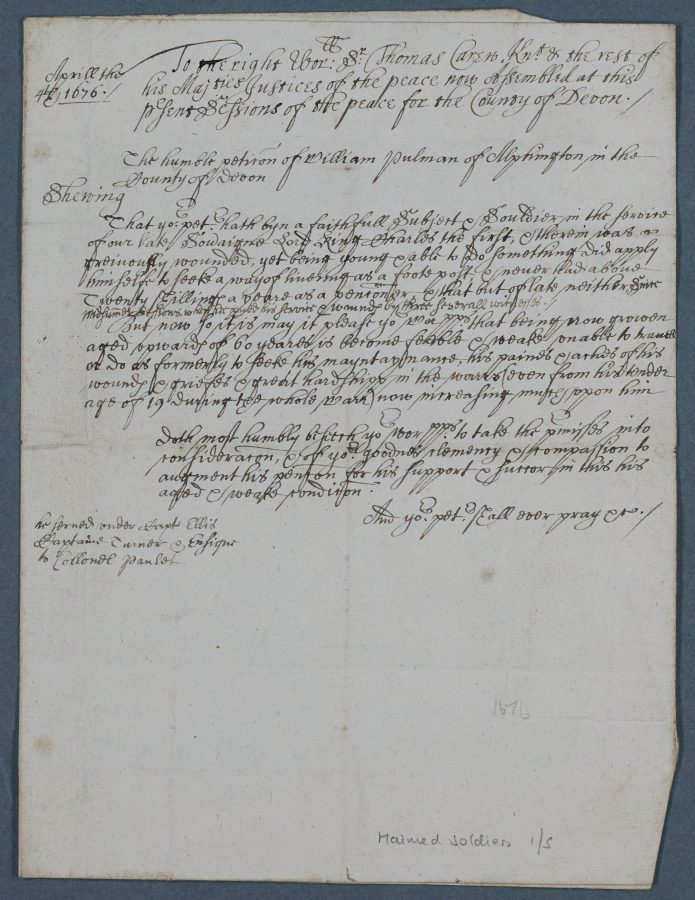 Aprill the
4th 1676./
To the right Wor:ll Sr. Thomas Carew Knt. & the rest of
his Majties Justices of the peace now Assembled at this
psent Sessions of the peace for the County of Devon./
The humble peticon of William Pulman of Alphington in the
County of Devon
Shewing
That yor. petr. hath byn a faithfull Subject & Souldier in the service
of our late Sovaigne Lord King Charles the first, & therein was
greivously wounded, yet being young & able to do something did apply
himselfe to seeke a way of liveing as a foote post & never had above
Twenty shillings a yeare as a pentoner & that but of late neither
service & wounds by three severall witnesses./
But now so it is may it please yor Worpps that being now growen
aged upwards of 60 yeares is become feeble & weake unable to travell
or do as formerly to seeke his mayntaynance, his paines & aches of his
wounds & griefes & great hardshipp in the warrs (even from his tender
age of 19 during the whole warr) now increasing much upon him
Doth most humbly beseech yor Worpps. to take the pmisses into
consideracon, & of yor. goodnes clemency & compassion to
augment his pencon for his support & succor in this his
aged & weake condicon.
And yor. petr. shall ever pray &c./
he served under Capt Ellis
Captaine Turner & Ensigne
to Collonel Paulet
1676
Maimed Soldiers 1/5